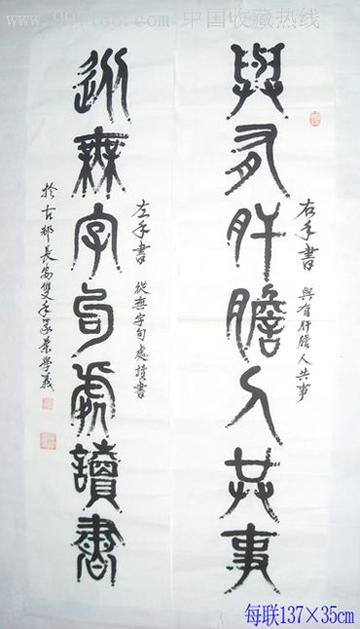 www.997788.com 中国收藏热线
與有肝膽人共事
右手書 與有肝膽人共事
從無字句處讀書
左手書 從無字句處讀書
於古都長安雙手學義
每联137×35cm